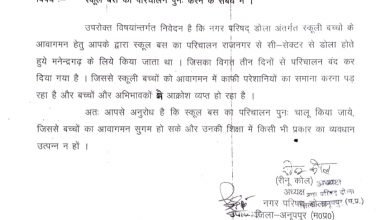 विषय :- स्कूल बस का परिचालन पुनः करने के संबंध में ।
उपरोक्त विषयान्तर्गत निवेदन है कि नगर परिषद् डोला अंतर्गत स्कूली बच्चो के
आवागमन हेतु आपके द्वारा स्कूल बस का परिचालन राजनगर से सी-सेक्टर से डोला होते
हुये मनेन्द्रगढ़ के लिये किया जाता था । जिसका विगत तीन दिनों से परिचालन बंद कर
दिया गया है । जिससे स्कूली बच्चों को आवागमन में काफी परेशानियों का समाना करना पड़
रहा है और बच्चों और अभिभावकों में आक्रोश व्यप्त हो रहा है ।
अतः आपसे अनुरोध है कि स्कूल बस का परिचालन पुनः चालू किया जाये,
जिससे बच्चों का आवागमन सुगम हो सके और उनकी शिक्षा में किसी भी प्रकार का व्यवधान
उत्पन्न न हों ।
(रीनू कोल)
अध्यक्ष
नगर परिषद् डोला
जिला-अनूपपुर (म०प्र०)